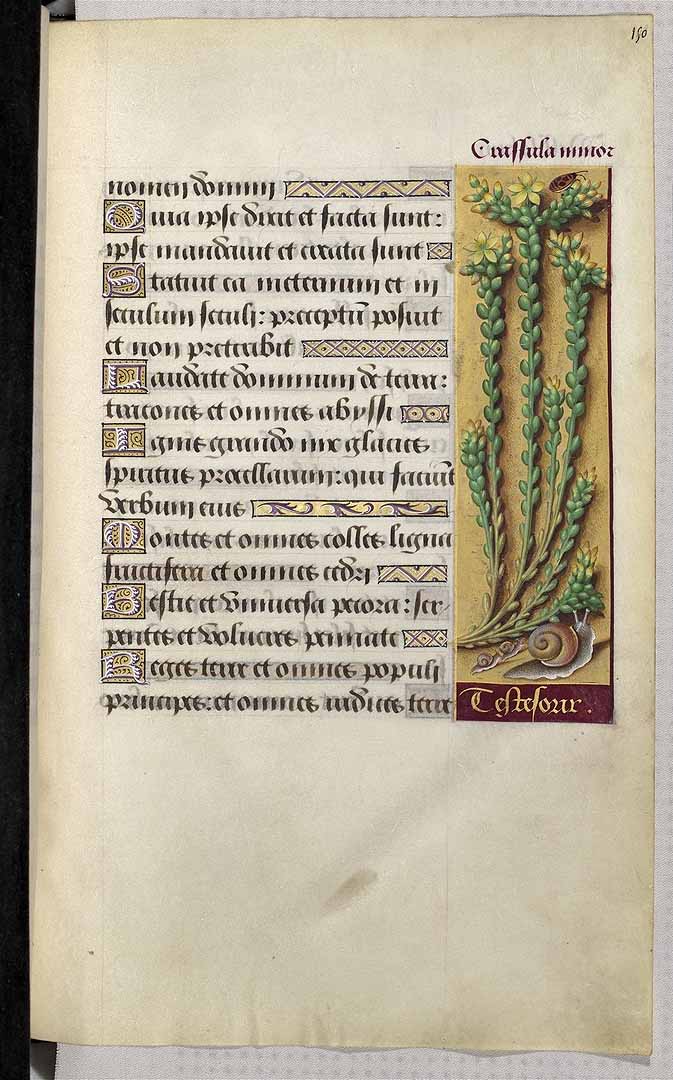 150
Crassula minor
nomen domini
Quia ipse dixit et facta sunt:
ipse mandauit et creata sunt
Statuit ea ineternum et in
seculum seculi: preceptū posuit
et non preteribit
Laudate dominum de terra:
dracones et omnes abyssi
Ignis grando nix glacies
spiritus procellarum: qui faciūt
verbum eius
Montes et omnes colles ligna
fructifera et omnes cedri
Bestie et vniuersa pecora: ser-
pentes et volucres pennate
Reges terre et omnes populi
principes: et omnes iudices terre
Testesour.